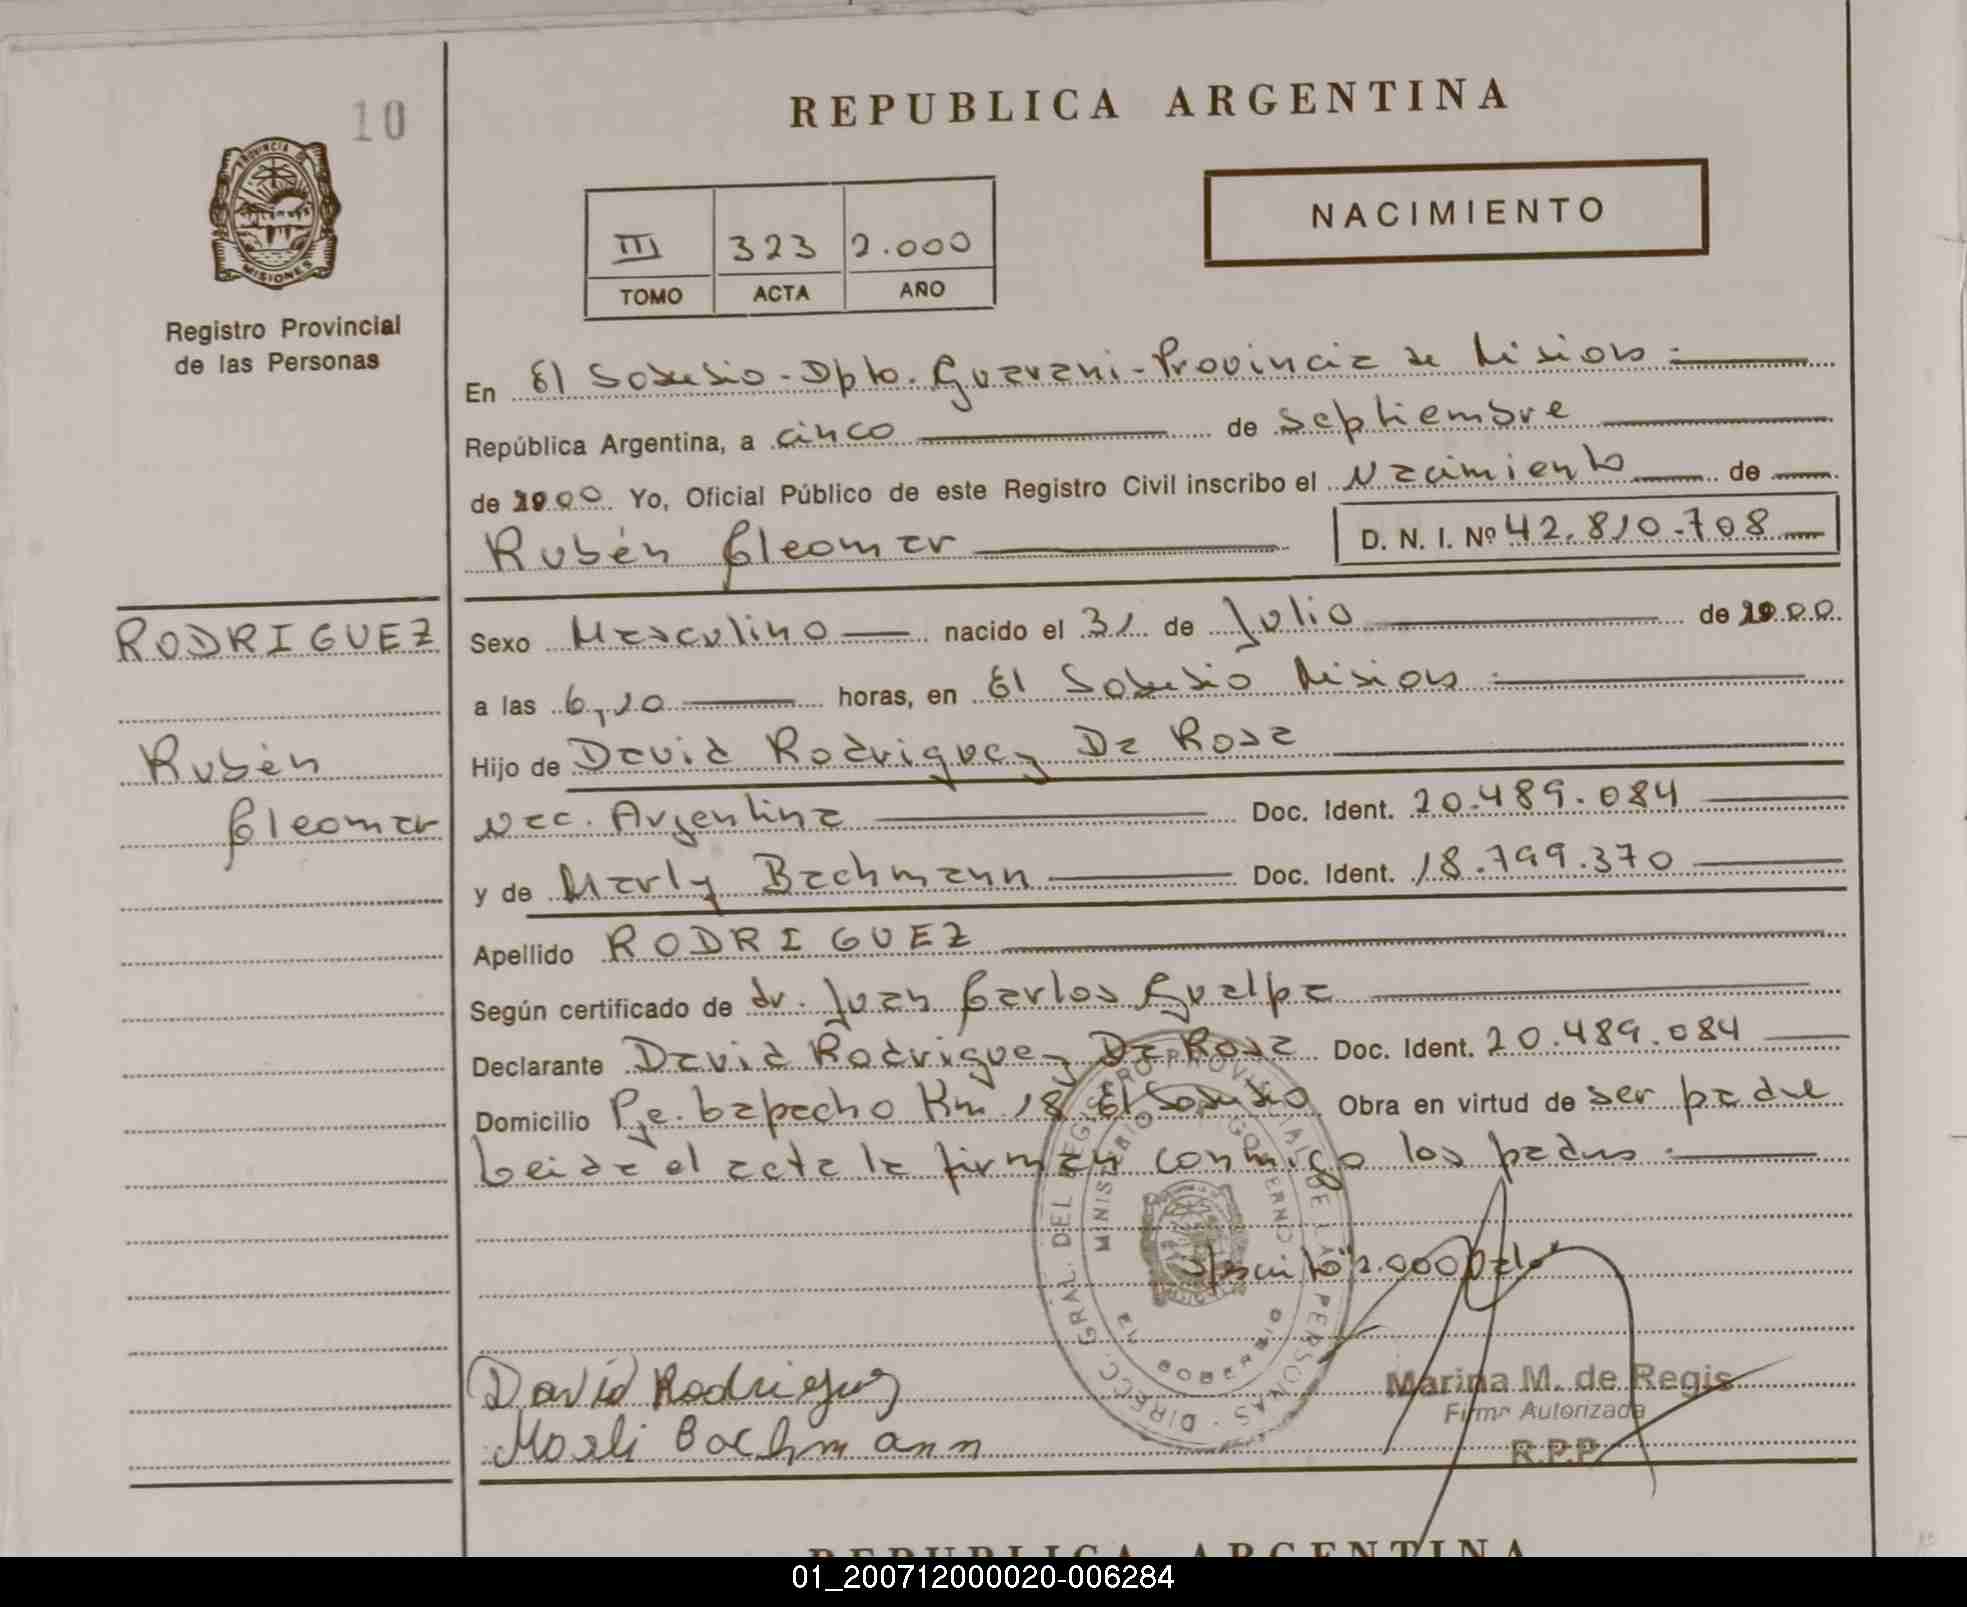 10
REPUBLICA ARGENTINA
PROVINCIA DE
MISIONES
Registro Provincial
de las Personas
NACIMIENTO
III 323 2.000
TOMO ACTA AÑO
En El Soberbio - Dpto. Guarani - Provincia de Misiones
República Argentina, a cinco de Septiembre
de 2000 Yo, Oficial Público de este Registro Civil inscribo el Nacimiento de
Rubén Cleomar D. N. I. Nº 42.810.708
RODRIGUEZ
Rubén
Cleomar
Sexo Masculino nacido el 31 de Julio de 2000
a las 6,20 horas, en El Soberbio Misiones
Hijo de David Rodriguez Da Rosa
Nac. Argentina Doc. Ident. 20.489.084
y de Marly Bachmann Doc. Ident. 18.799.370
Apellido RODRIGUEZ
Según certificado de dr. Juan Carlos Gualpa
Declarante David Rodriguez Da Rosa Doc. Ident. 20.489.084
Domicilio Pje. Capacho Km 18 El Soberbio Obra en virtud de ser padre
Leida el acta la firman conmigo los padres
2.000 Vale
DIRECC. GRAL. DEL REGISTRO PROVINCIAL DE LAS PERSONAS
MINISTERIO DE GOBIERNO
David Rodriguez
Marli Bachmann
Marina M. de Regis
Firma Autorizada
R.P.P.
REPUBLICA ARGENTINA
01_200712000020-006284